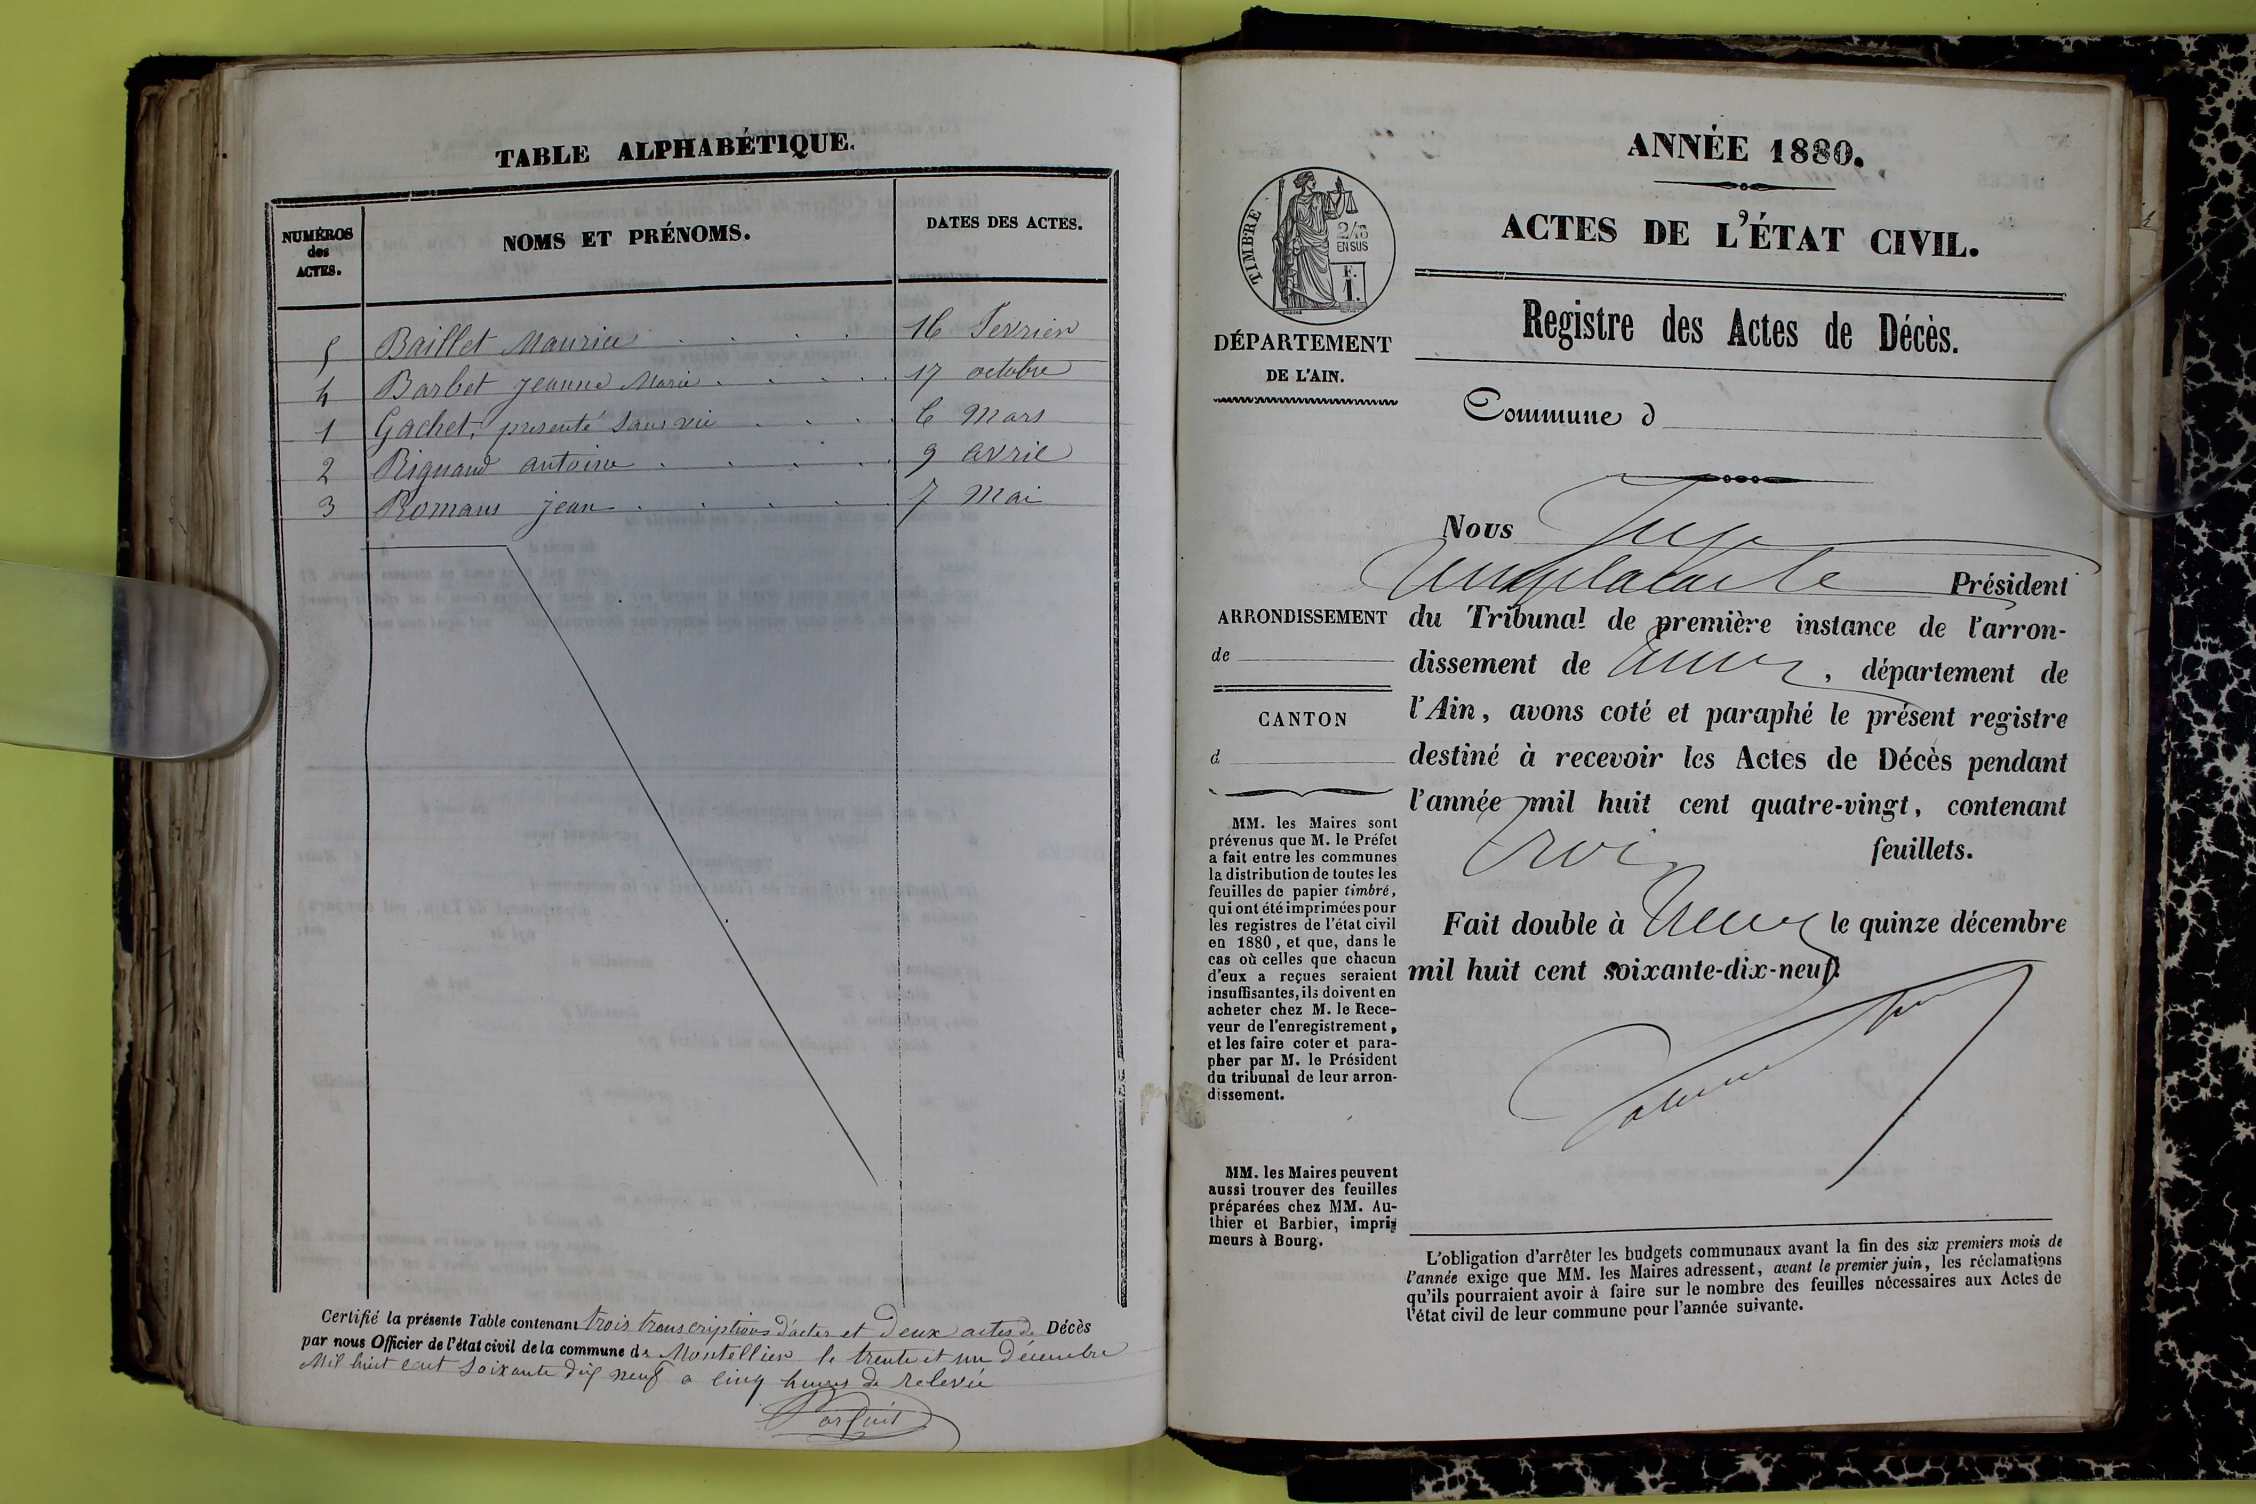 TABLE ALPHABÉTIQUE.
NUMÉROS des ACTES.
NOMS ET PRÉNOMS.
DATES DES ACTES.
5 Baillet Maurice 16 Fevrier
4 Barbet jeanne Marie 17 octobre
1 Gachet, presenté sans vie 6 Mars
2 Rignaud antoine 9 avril
3 Romans jean 7 Mai
Certifié la présente Table contenant trois transcriptions d'actes et Deux actes de Décès
par nous Officier de l'état civil de la commune de Montellier le trente et un Décembre
Mil huit cent soixante dix neuf a cinq heures de relevée
ANNÉE 1880.
ACTES DE L'ÉTAT CIVIL.
TIMBRE
2/10
EN SUS
F.
1.
DÉPARTEMENT
DE L'AIN.
Registre des Actes de Décès.
Commune d
Nous Juge
Président
ARRONDISSEMENT
de
CANTON
d
du Tribunal de première instance de l'arron-
dissement de , département de
l'Ain, avons coté et paraphé le présent registre
destiné à recevoir les Actes de Décès pendant
l'année mil huit cent quatre-vingt, contenant
trois feuillets.
Fait double à le quinze décembre
mil huit cent soixante-dix-neuf.
MM. les Maires sont
prévenus que M. le Préfet
a fait entre les communes
la distribution de toutes les
feuilles de papier timbré,
qui ont été imprimées pour
les registres de l'état civil
en 1880, et que, dans le
cas où celles que chacun
d'eux a reçues seraient
insuffisantes, ils doivent en
acheter chez M. le Rece-
veur de l'enregistrement,
et les faire coter et para-
pher par M. le Président
du tribunal de leur arron-
dissement.
MM. les Maires peuvent
aussi trouver des feuilles
préparées chez MM. Au-
thier et Barbier, impri-
meurs à Bourg.
L'obligation d'arrêter les budgets communaux avant la fin des six premiers mois de
l'année exige que MM. les Maires adressent, avant le premier juin, les réclamations
qu'ils pourraient avoir à faire sur le nombre des feuilles nécessaires aux Actes de
l'état civil de leur commune pour l'année suivante.